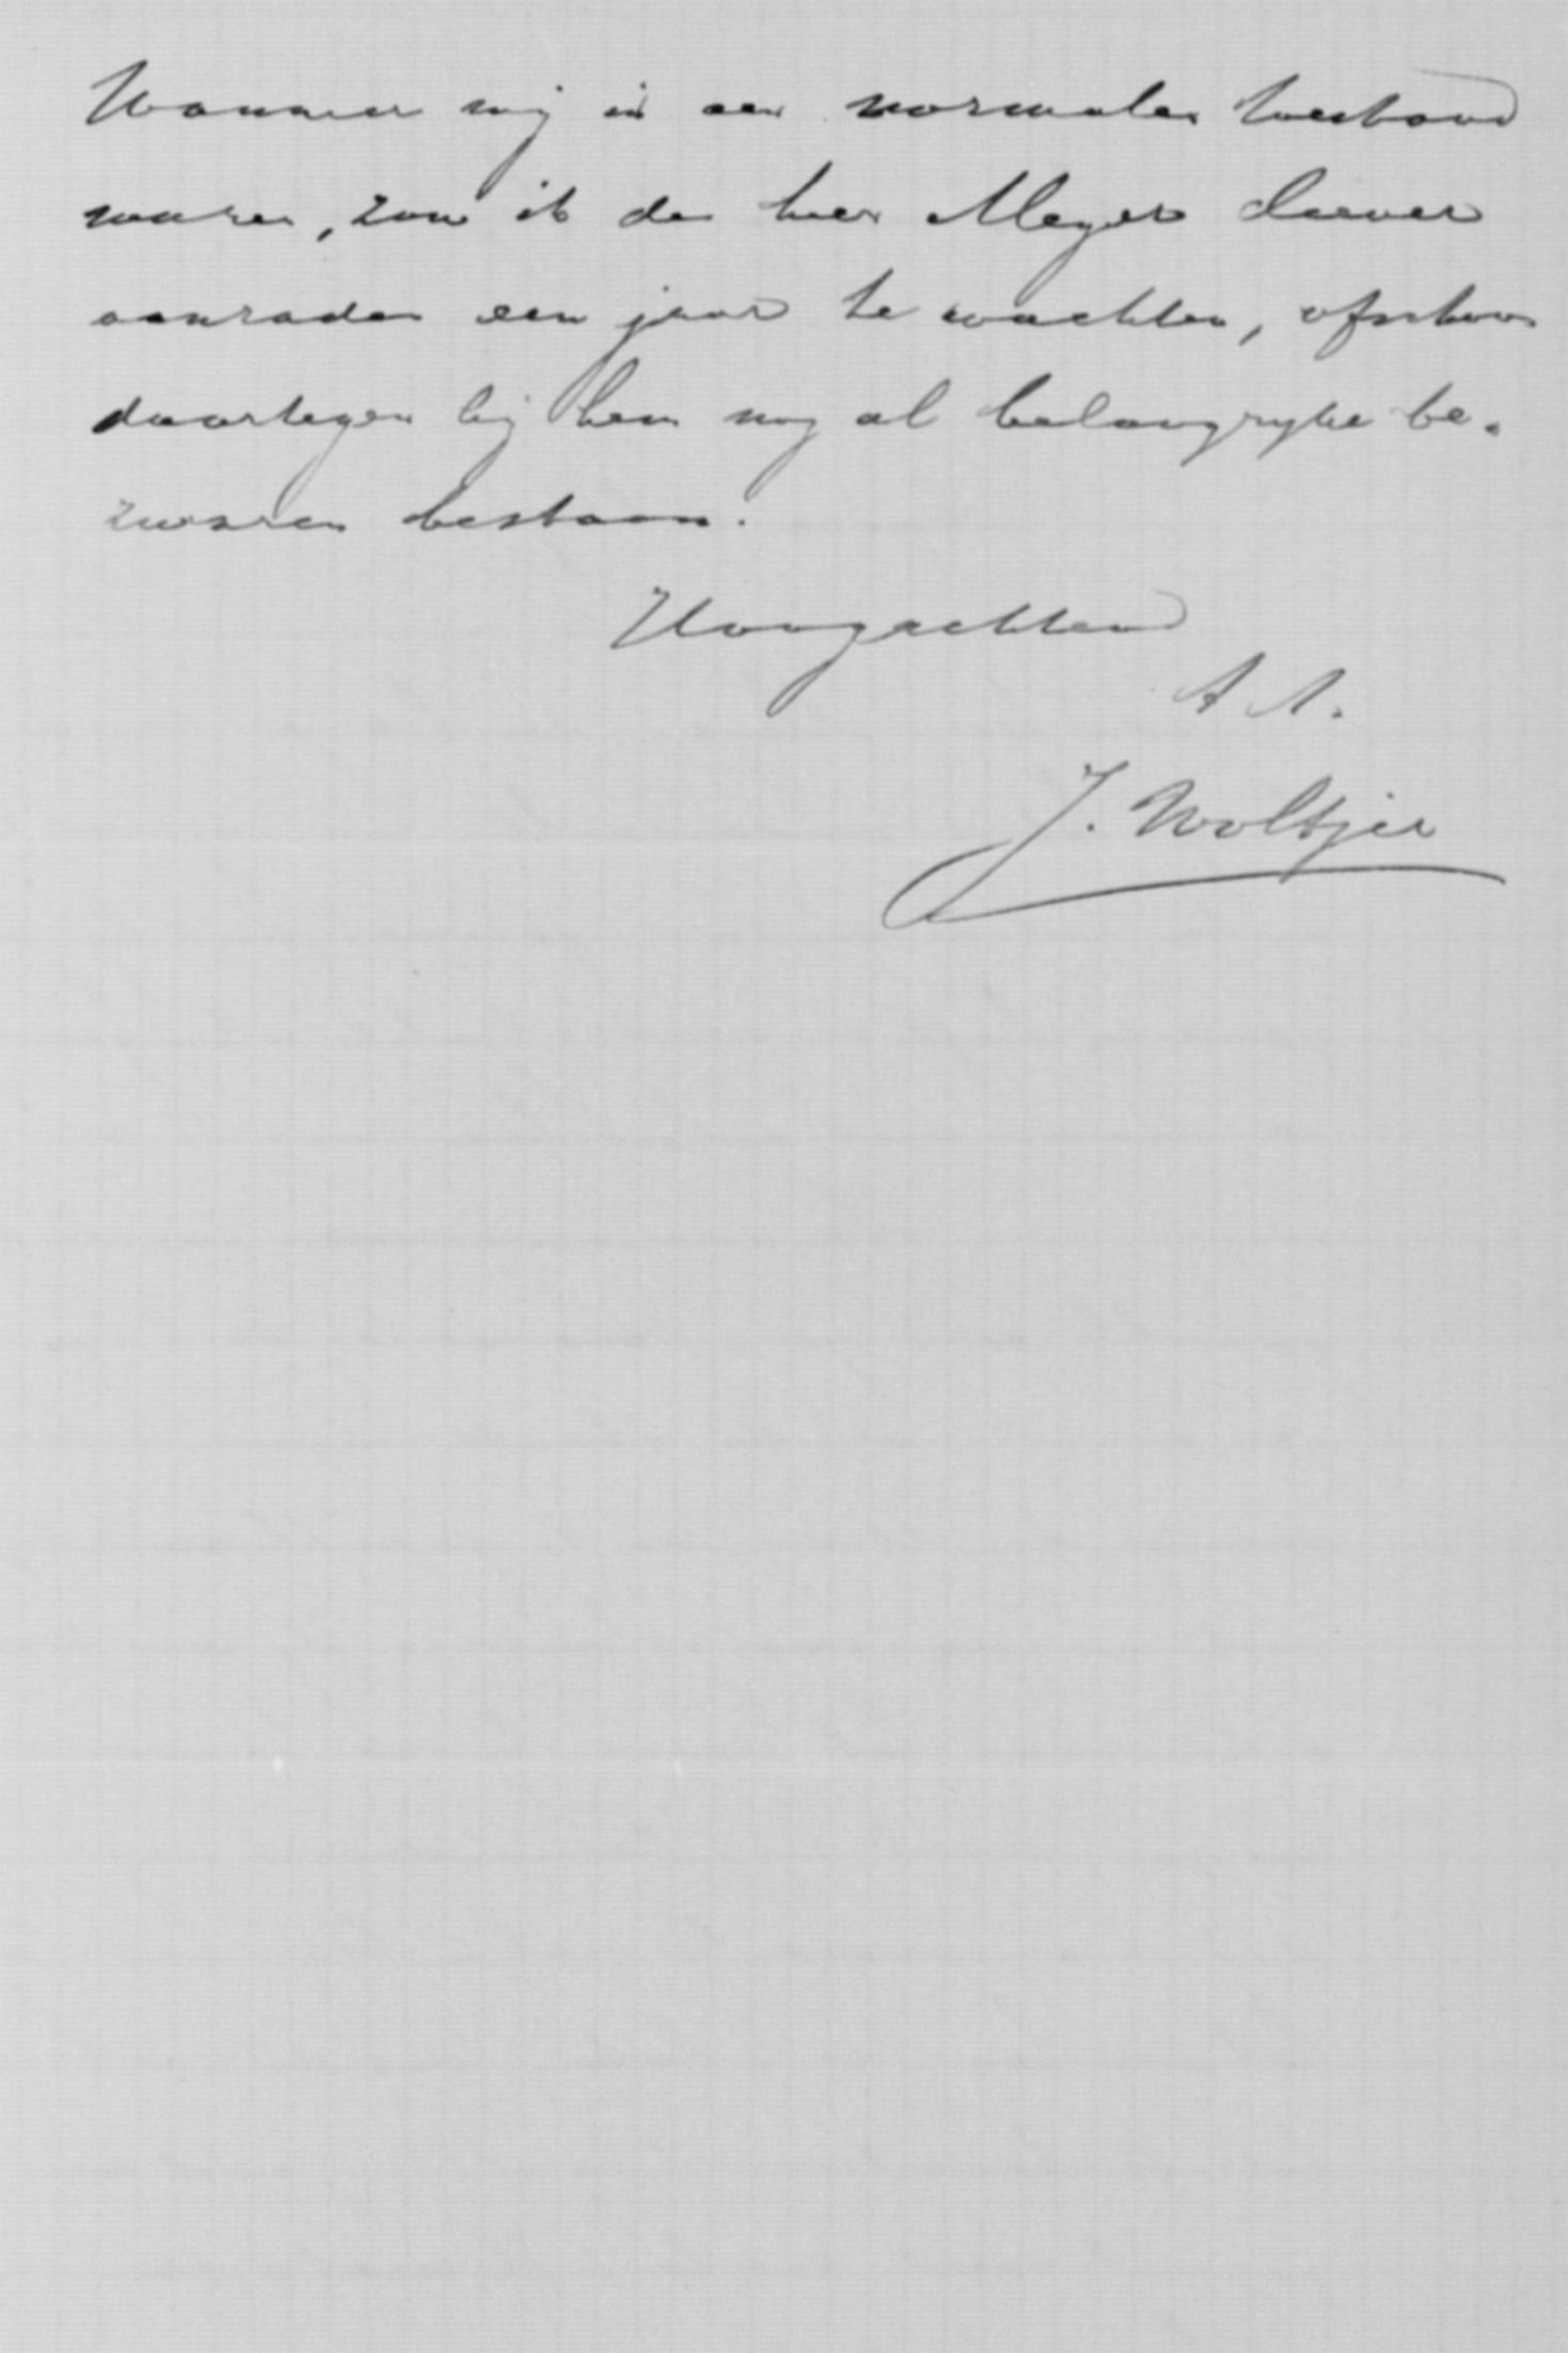 Wanneer wij in een normalen toestand
waren, zou ik den heer Meyer liever
aanraden een jaar te wachten, ofschoon
daartegen bij hem nog al belangryke be-
zwaren bestaan.
Hoogachtend
J. Woltjer